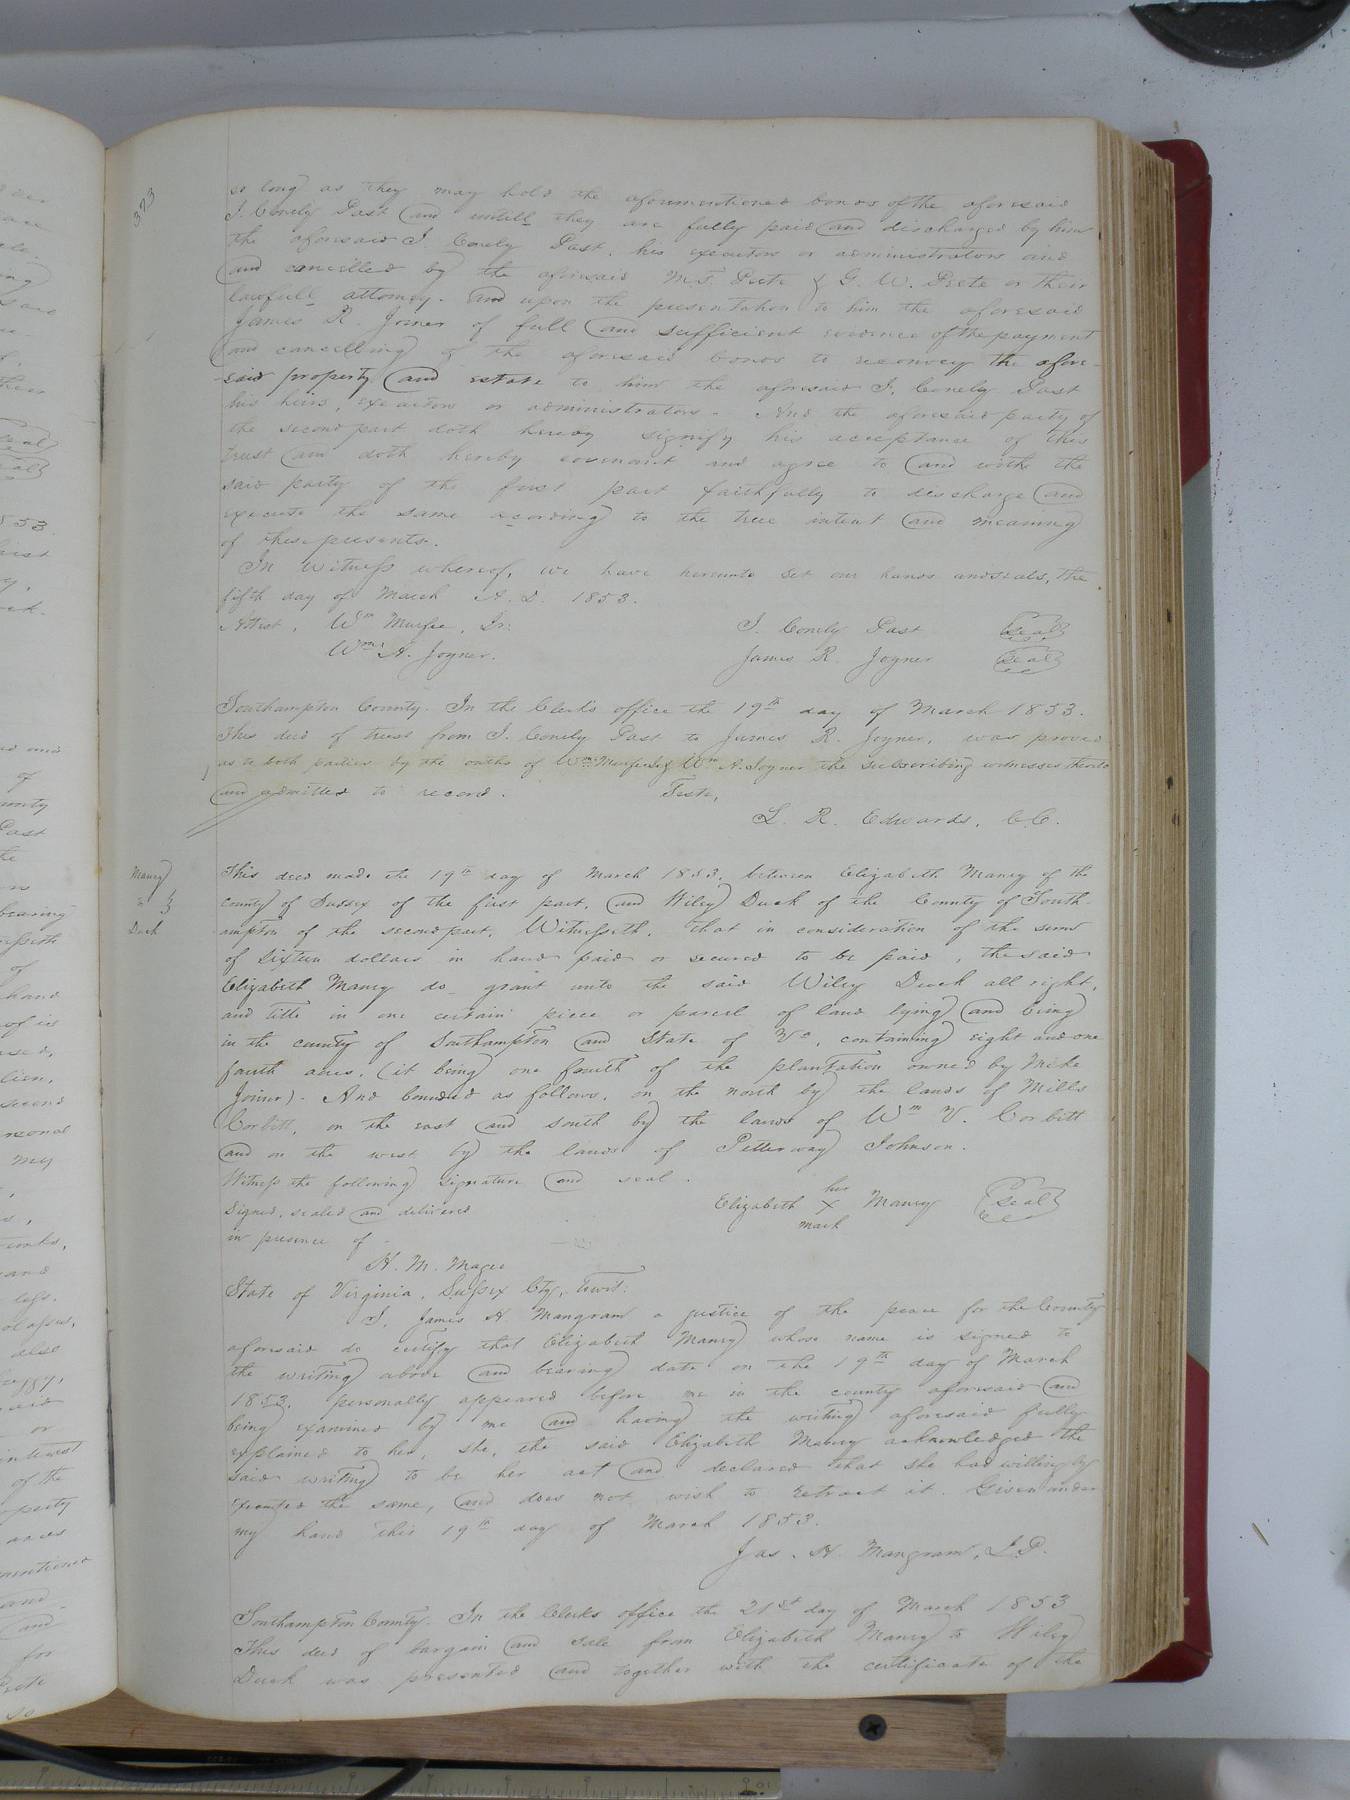 323
so long as they may hold the aforementioned bonds of the aforesaid
J. Conely Past and untill they are fully paid and discharged by him
the aforesaid J. Conely Past, his executors or administrators and
and cancelled by the aforesaid M. T. Peete & G. W. Peete or their
lawfull attorney. and upon the presentation to him the aforesaid
James R. Joiner of full and sufficient evidence of the payment
and cancelling of the aforesaid bonds to reconvey the afore-
-said property and estate to him the aforesaid J. Conely Past
his heirs, executors or administrators. And the aforesaid party of
the second part doth hereby signify his acceptance of this
trust and doth hereby covenant and agree to and withe the
said party of the first part faithfully to discharge and
execute the same acording to the true intent and meaning
of these presents.
In witness whereof, we have hereunto set our hands and seals, the
fifth day of March A. D. 1853.
Attest, Wm Murfee, Sr. J. Conely Past Seal
Wm A. Joyner. James R. Joyner Seal
Southampton County. In the Clerk's office the 19th day of March 1853.
This deed of trust from J. Conely Past to James R. Joyner, was proved
as to both parties by the oaths of Wm Murfee Sr & Wm A. Joyner the subscribing witnesses thereto
and admitted to record. Teste,
L. R. Edwards, C.C.
Maury
to
Duck
This deed made the 19th day of March 1853, between Elizabeth Maury of the
county of Sussex of the first part, and Wiley Duck of the County of South-
ampton of the second part, Witnesseth, that in consideration of the sum
of Sixteen dollars in hand paid or secured to be paid, the said
Elizabeth Maury do grant unto the said Wiley Duck all right,
and title in one certain piece or parcel of land lying and being
in the county of Southampton and State of Va, containing eight and one
fourth acres, (it being one fourth of the plantation owned by Mike
Joiner). And bounded as follows, on the north by the lands of Mills
Corbitt, on the east and south by the lands of Wm V. Corbitt
and on the west by the lands of Petterway Johnson.
Witness the following signature and seal.
Signed, sealed and delivered Elizabeth her X mark Maury Seal
in presence of
H. M. Magee
State of Virginia, Sussex Cty, Towit:
I, James H. Mangram a justice of the peace for the County
aforesaid do certify that Elizabeth Maury whose name is signed to
the writing above and bearing date on the 19th day of March
1853, personally appeared before me in the county aforesaid and
being examined by me and having the writing aforesaid fully
explained to her, she, the said Elizabeth Maury acknowledged the
said writing to be her act and declared that she had willingly
executed the same, and does not wish to retract it. Given under
my hand this 19th day of March 1853.
Jas. H. Mangram, J.P.
Southampton County. In the Clerks office the 21st day of March 1853
This deed of bargain and sale from Elizabeth Maury to Wiley
Duck was presented and together with the certificate of the